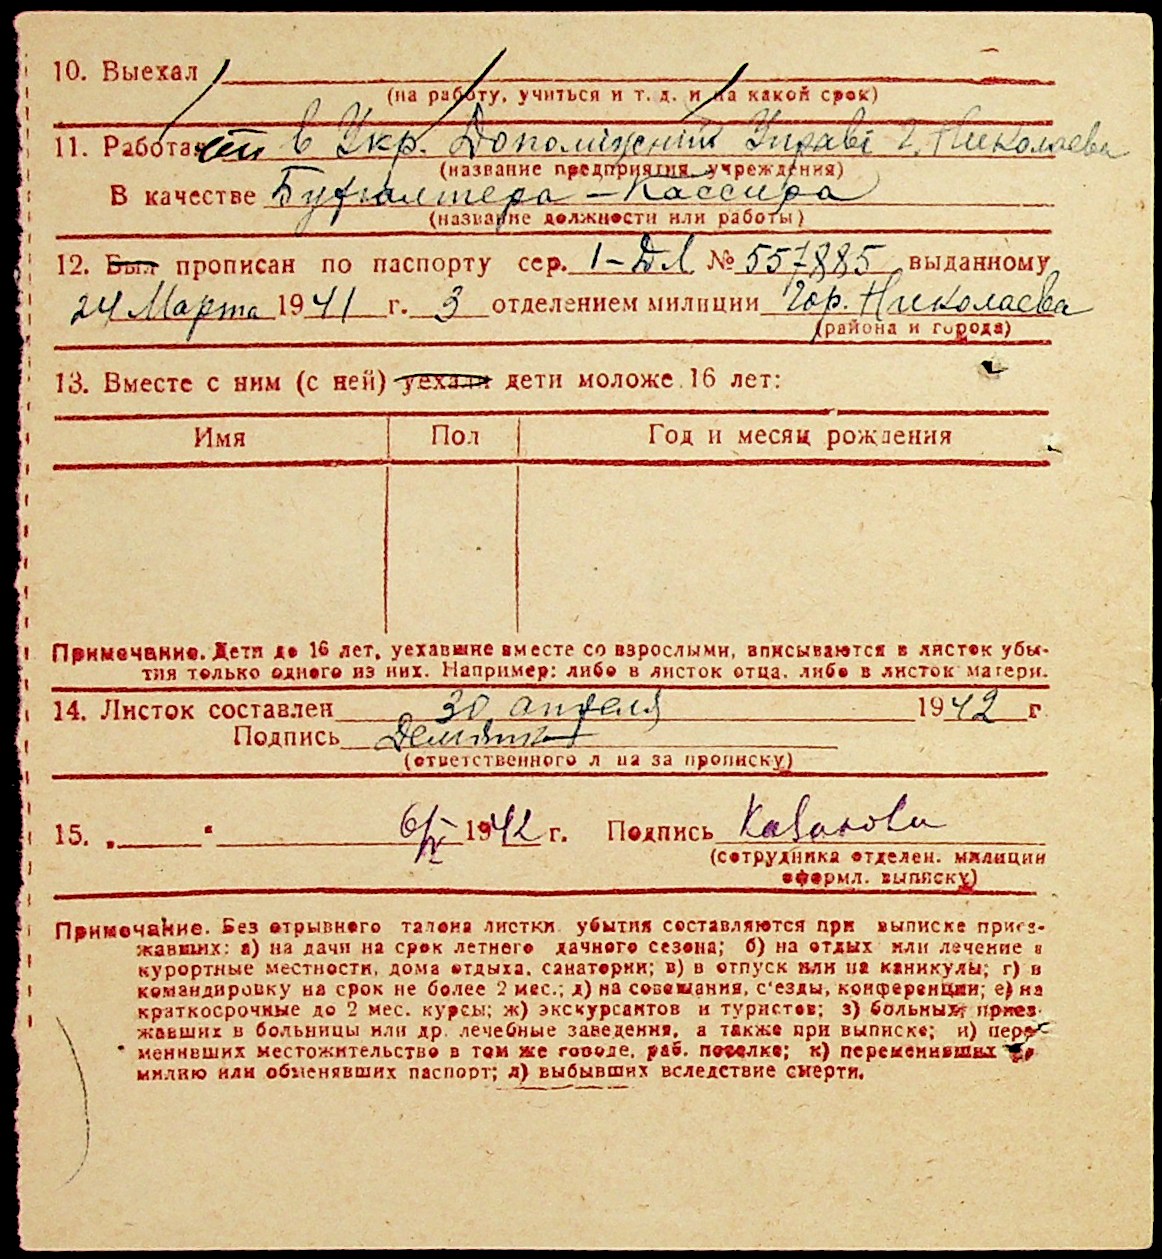 10. Выехал
(на работу, учиться и т. д. и на какой срок)
11. Работает в Укр. Допоміжній Управі г. Николаева
(название предприятия, учреждения)
В качестве Бухгалтера - Кассира
(название должности или работы)
12. Был прописан по паспорту сер. 1-ДЛ № 557885 выданному
24 Марта 1941 г. 3 отделением милиции Гор. Николаева
(района и города)
13. Вместе с ним (с ней) уехали дети моложе 16 лет:
Имя Пол Год и месяц рождения
Примечание. Дети до 16 лет, уехавшие вместе со взрослыми, вписываются в листок убы-
тия только одного из них. Например: либо в листок отца, либо в листок матери.
14. Листок составлен 30 апреля 1942 г.
Подпись
(ответственного л ца за прописку)
15. „ " 6/V 1942 г. Подпись Казакова
(сотрудника отделен. милиции
оформл. выписку)
Примечание. Без отрывного талона листки убытия составляются при выписке приез-
жавших: а) на дачи на срок летнего дачного сезона; б) на отдых или лечение в
курортные местности, дома отдыха, санатории; в) в отпуск или на каникулы; г) в
командировку на срок не более 2 мес.; д) на совещания, с'езды, конференции; е) на
краткосрочные до 2 мес. курсы; ж) экскурсантов и туристов; з) больных, приез-
жавших в больницы или др. лечебные заведения, а также при выписке; и) пере-
менивших местожительство в том же городе, раб. поселке; к) переменивших фа-
милию или обменявших паспорт; л) выбывших вследствие смерти.